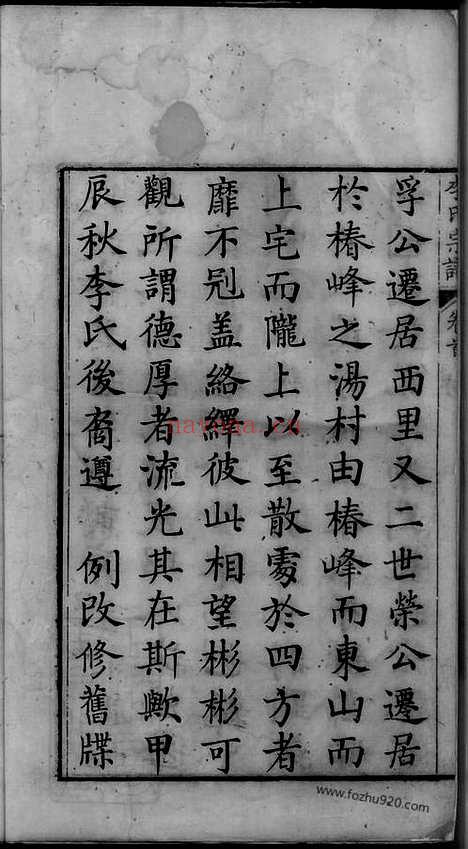 李氏宗譜
卷首
孚公遷居西里又二世榮公遷居
於椿峰之湯村由椿峰而東山而
上宅而隴上以至散處於四方者
靡不剋盖絡繹彼此相望彬彬可
觀所謂德厚者流光其在斯歟甲
辰秋李氏後裔遵 例改修舊牒
nayona.cn
www.fozhu920.com